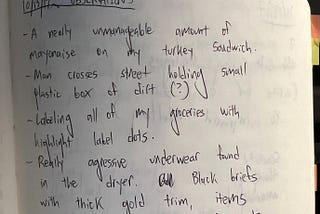 OBSERVATIONS
- A really unmanageable amount of
mayonaise on my turkey sandwich.
- Man crosses street holding small
plastic box of dirt (?)
- Labeling all of my groceries with
highlight label dots.
- Really agressive underwear found
in the dryer. Black briefs
with thick gold trim, items